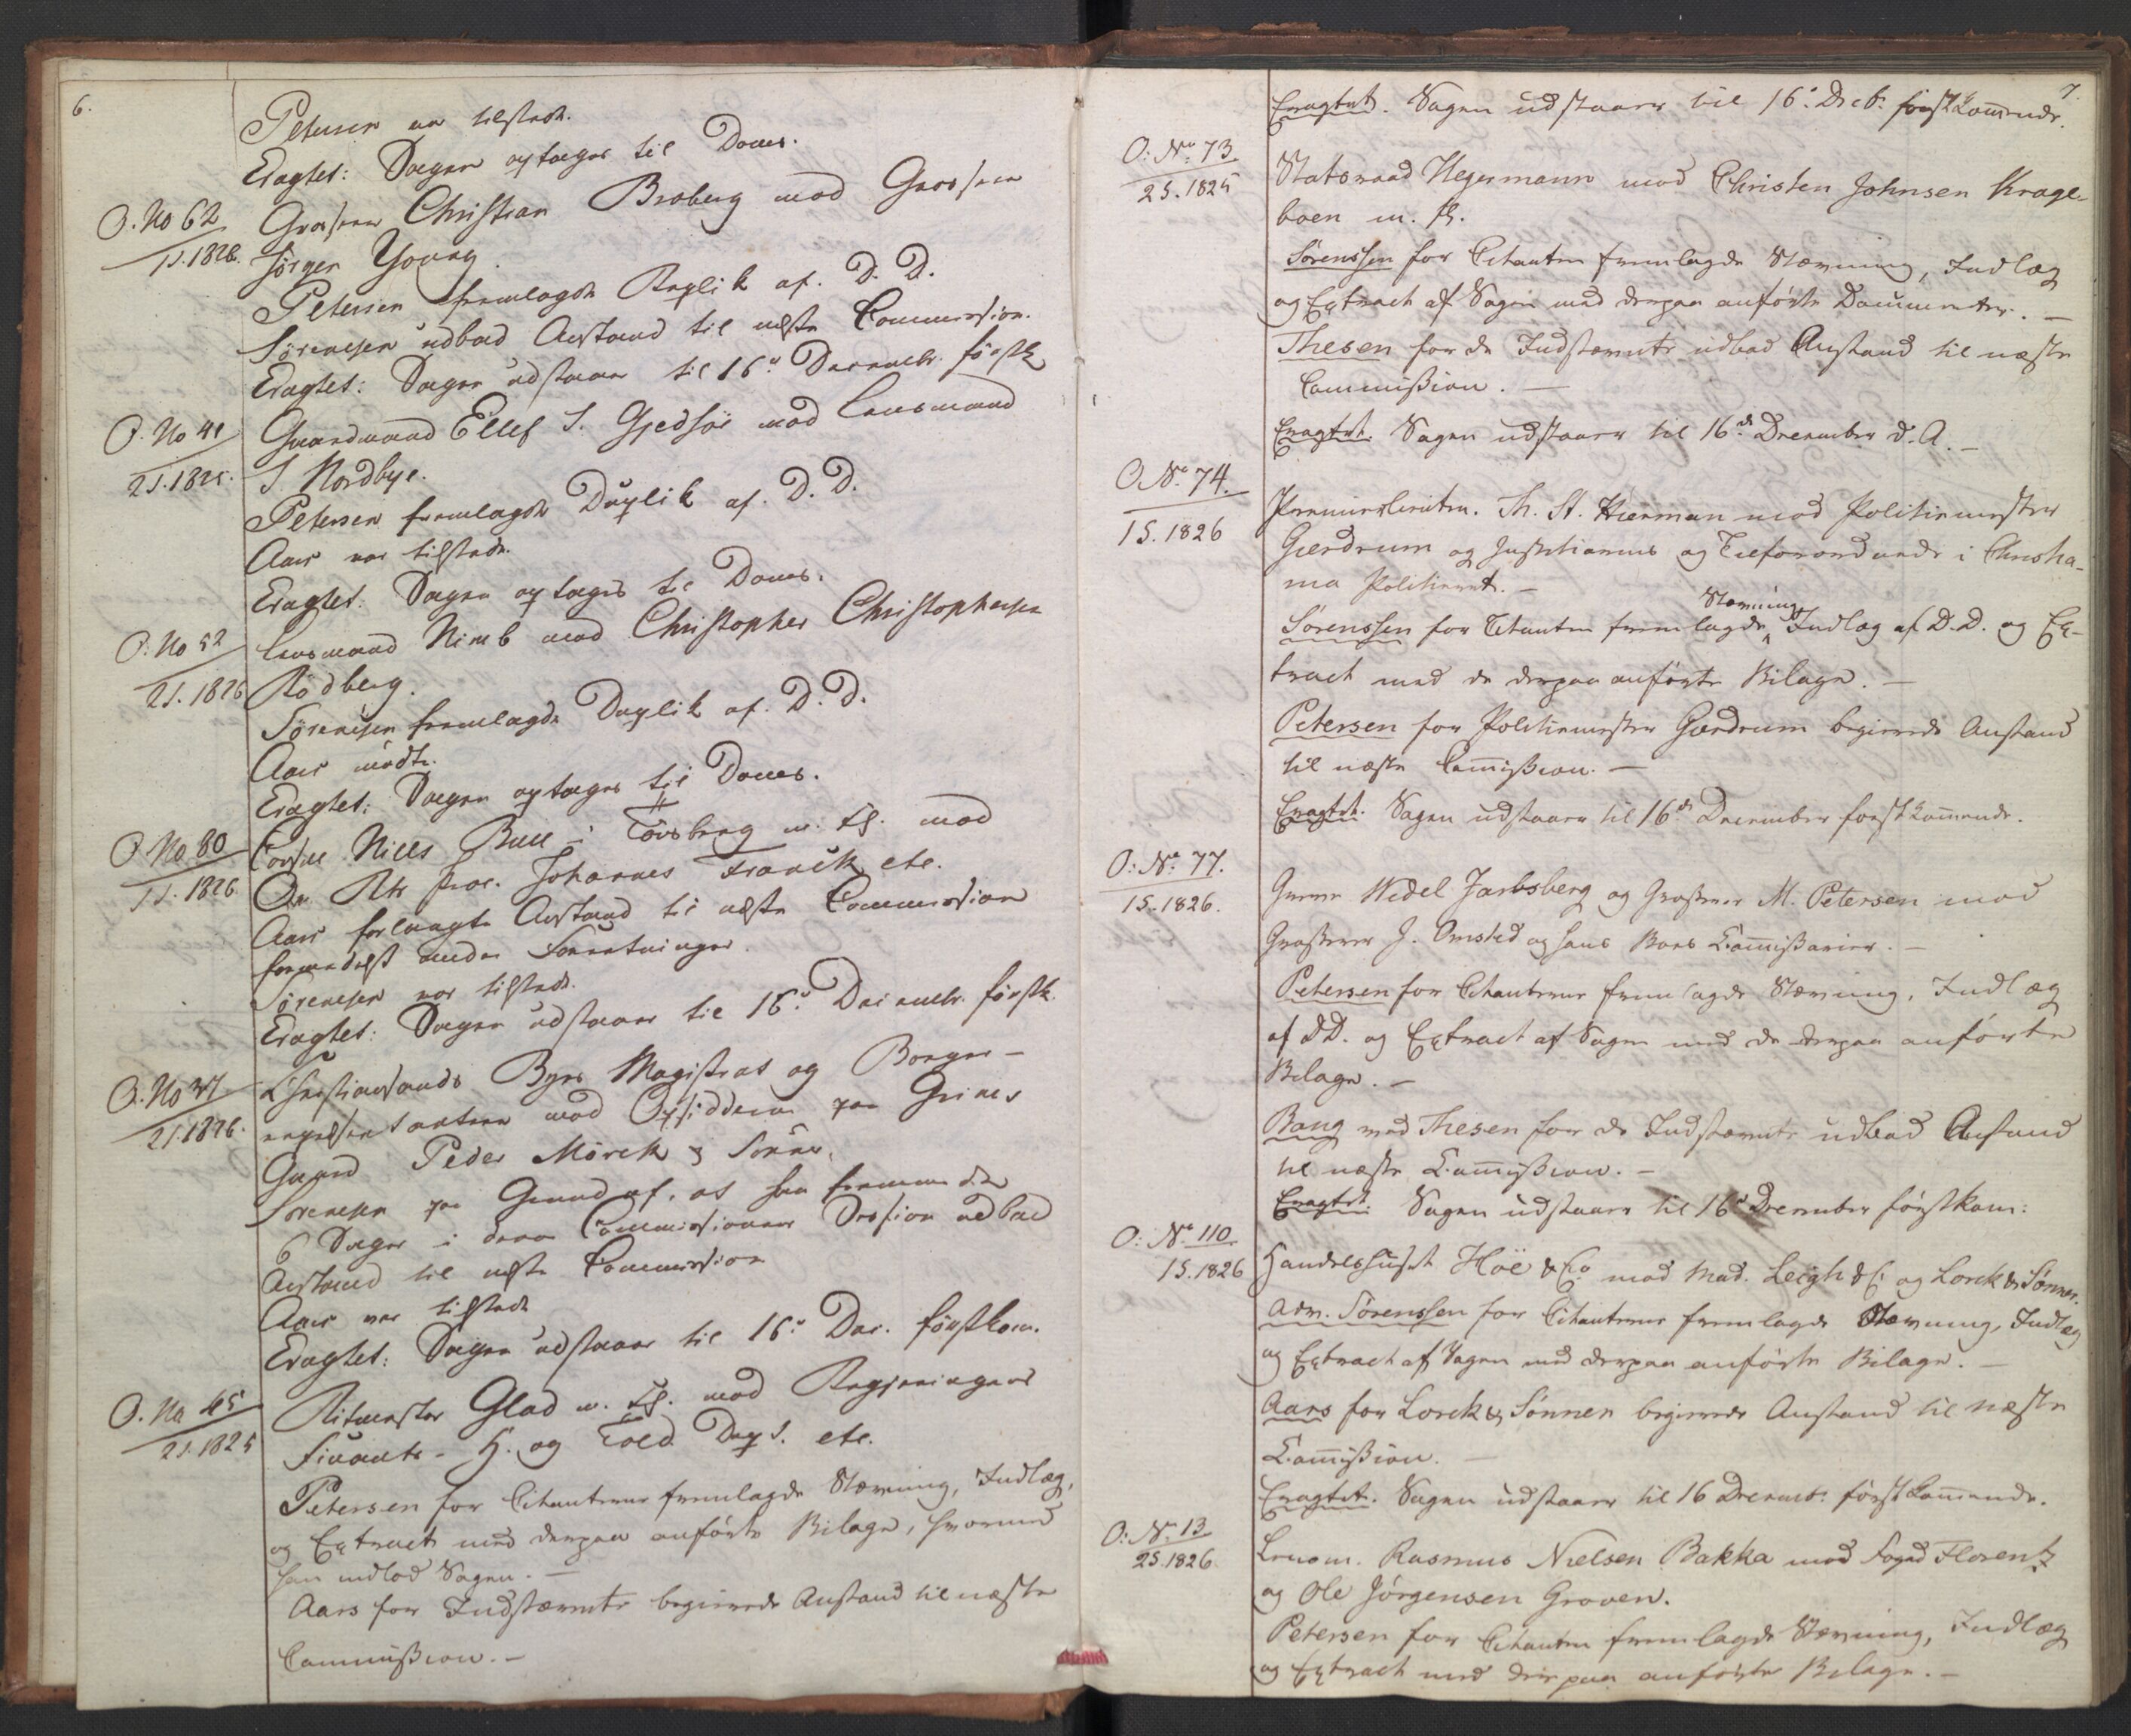 6.
Petersen var tilstede.
Eragtet: Sagen optages til Doms.
O. No 62
1S. 1826.
Grosserer Christian Broberg mod Grosserer
Jörgen Young.
Petersen fremlagde Replik af. D. D.
Sörensen udbad Anstand til næste Commission.
Eragtet: Sagen udstaaer til 16de Decembr. förstk
O. No 41
2S. 1825.
Gaardmand Ellef S. Gjedsöe mod Lensmand
S. Nordbye.
Petersen fremlagde Duplik af. D. D.
Aars var tilstede.
Eragtet: Sagen optages til Doms.
O. No 52
2S. 1826
Lensmand Nimb mod Christopher Christophersen
Rödberg.
Sörensen fremlagde Duplik af. D. D.
Aars mödte.
Eragtet: Sagen optages til Doms.
O. No 80
1S. 1826
Consul Niels Bull i Tönsberg m. fl. mod
Or. Rts proc. Johannes Franck etc.
Aars forlangte Anstand til næste Commission
formedelst andre Forretninger.
Sörensen var tilstede.
Eragtet: Sagen udstaaer til 16de Decembr. förstk.
O. No 37
2S. 1826.
Christiansands Byes Magistrat og Borger-
repræsentanter mod Opsidderne paa Griims
Gaard Peder Mörck & Sönner.
Sörensen paa Grund af, at han fremmede
6 Sager i denne Commissionens Session udbad
Anstand til næste Commission
Aars var tilstede
Eragtet: Sagen udstaaer til 16de Dec. förstkom.
O. No 45
2S. 1825
Ritmester Glad m. fl. mod Regjeringens
Finants- H. og Told Dept. etc.
Petersen for Citanterne fremlagde Stævning, Indlæg,
og Extract med derpaa anförte Bilage, hvormed
han indlod Sagen. —
Aars for Indstævnte begierede Anstand til næste
Commission. —
7.
Eragtet. Sagen udstaaer til 16de Decbr förstkommende.
O: No 73
2S. 1825
Statsraad Hegermann mod Christen Johnsen Krage-
boen m. fl.
Sörenssen for Citanten fremlagde Stævning, Indlæg
og Extract af Sagen med derpaa anförte Documenter. —
Thesen for de Indstævnte udbad Anstand til næste
Commission. —
Eragtet. Sagen udstaaer til 16de December d. A. —
O No 74.
1S. 1826
Premierlieutn. Th. St. Hierman mod Politiemester
Gærdrum og Justitiarius og Tilforordnede i Christia-
nia Politieret. —
Stævning,
Sörenssen for Citanten fremlagde Indlæg af D. D. og Ex-
tract med de derpaa anförte Bilage. —
Petersen for Politiemester Gærdrum begierede Anstand
til næste Commission. —
Eragtet. Sagen udstaaer til 16de December forstkommende.
O: No 77.
1S. 1826.
Greve Wedel Jarlsberg og Grosserer M. Petersen mod
Grosserer J. Omsted og hans Boes Commissarier. —
Petersen for Citanterne fremlagde Stævning, Indlæg
af DD. og Extract af Sagen med de derpaa anförte
Bilage. —
Bang med Thesen for de Indstævnte udbad Anstand
til næste Commission. —
Eragtet. Sagen udstaaer til 16de December förstkom:
O: No 110
1S. 1826
Handelshuset Höe & Co mod Mad. Leigh & C. og Lorck & Sönner.
Adv. Sörenssen for Citanterne fremlagde Stævning, Indlæg
og Extract af Sagen med derpaa anförte Bilage. —
Aars for Lorck & Sönner begierede Anstand til næste
Commission. —
Eragtet. Sagen udstaaer til 16 Decembr förstkommende.
O: No 13
2S. 1826
Lensm. Rasmus Nielsen Bakka mod Foged Florentz
og Ole Jörgensen Groven.
Petersen for Citanten fremlagde Stævning, Indlæg
og Extract med derpaa anförte Bilage. —